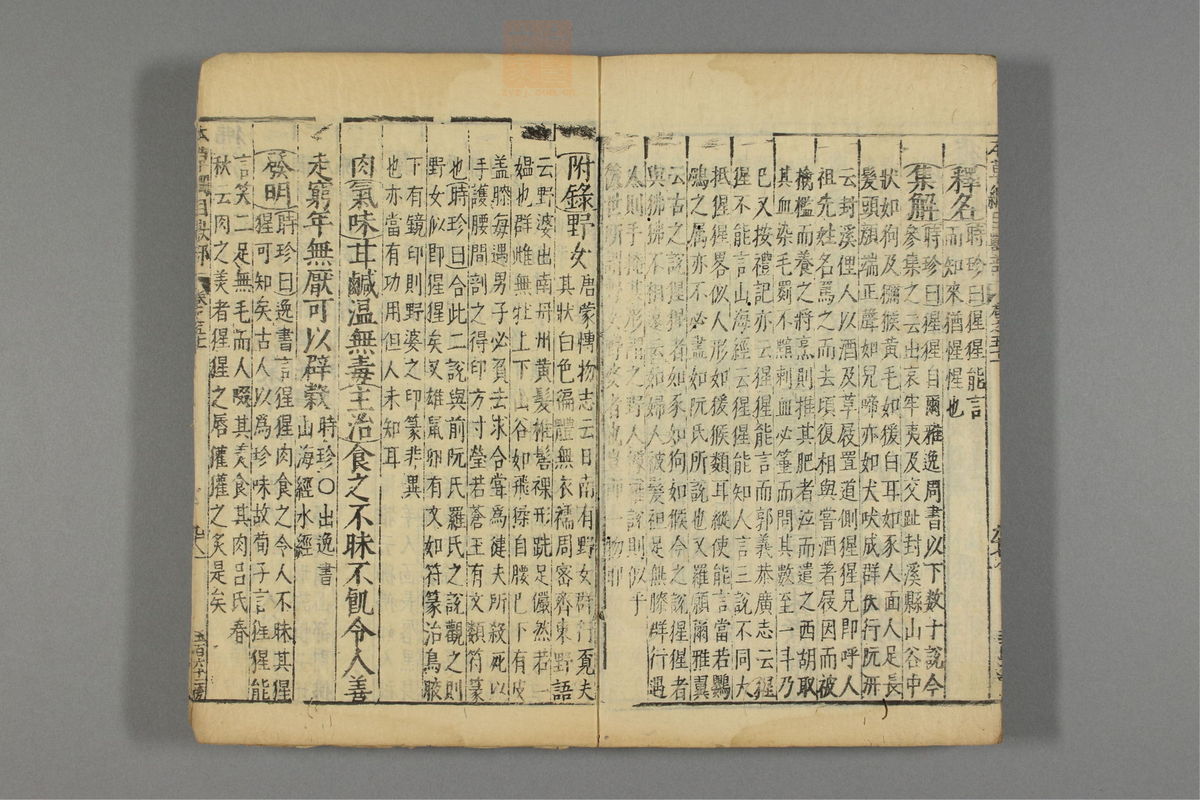 釋名時珍曰猩猩能言
而知來猶惺惺也
集解時珍曰猩猩自爾雅逸周書以下數十說今
參集之云出哀牢夷及交趾封溪縣山谷中
狀如狗及獼猴黃毛如猿白耳如豕人面人足長
髮頭顏端正聲如兒啼亦如犬吠成群伏行阮汧
云封溪俚人以酒及草屐置道側猩猩見即呼人
祖先姓名罵之而去頃復相與嘗酒著屐因而被
擒檻而養之將烹則推其肥者泣而遣之西胡取
其血染毛罽不黯刺血必箠而問其數至一斗乃
巳又按禮記亦云猩猩能言而郭義恭廣志云猩
猩不能言山海經云猩猩能知人言三說不同大
抵猩猩畧似人形如猿猴類耳縱使能言當若鸚
鵡之屬亦不必盡如阮氏所說也又羅願爾雅翼
云古之說猩猩者如豕如狗如猴今之說猩猩者
與狒狒不相遠云如婦人被髮袒足無膝群行遇
人則手掩其形謂之野人據此說則似乎
後世所謂野女野婆者也豈即一物耶
附錄野女唐蒙博物志云日南有野女群行覔夫
其狀白色徧體無衣襦周密齊東野語
云野婆出南丹州黃髮椎髻裸形跣足儼然若一
媼也群雌無牡上下山谷如飛猱自腰巳下有皮
盖膝每遇男子必負去求合嘗爲健夫所殺死以
手護腰間剖之得印方寸瑩若蒼玉有文類符篆
也時珍曰合此二說與前阮氏羅氏之說觀之則
野女似即猩猩矣又雄鼠卵有文如符篆治鳥腋
下有鏡印則野婆之印篆非異
也亦當有功用但人未知耳
肉氣味甘鹹温無毒主治食之不昧不飢令人善
走窮年無厭可以辟穀時珍○出逸書
山海經水經
發明時珍曰逸書言猩猩肉食之令人不昧其猩
猩可知矣古人以爲珍味故荀子言猩猩能
言笑二足無毛而人啜其羮食其肉呂氏春
秋云肉之美者猩猩之唇獾獾之炙是矣